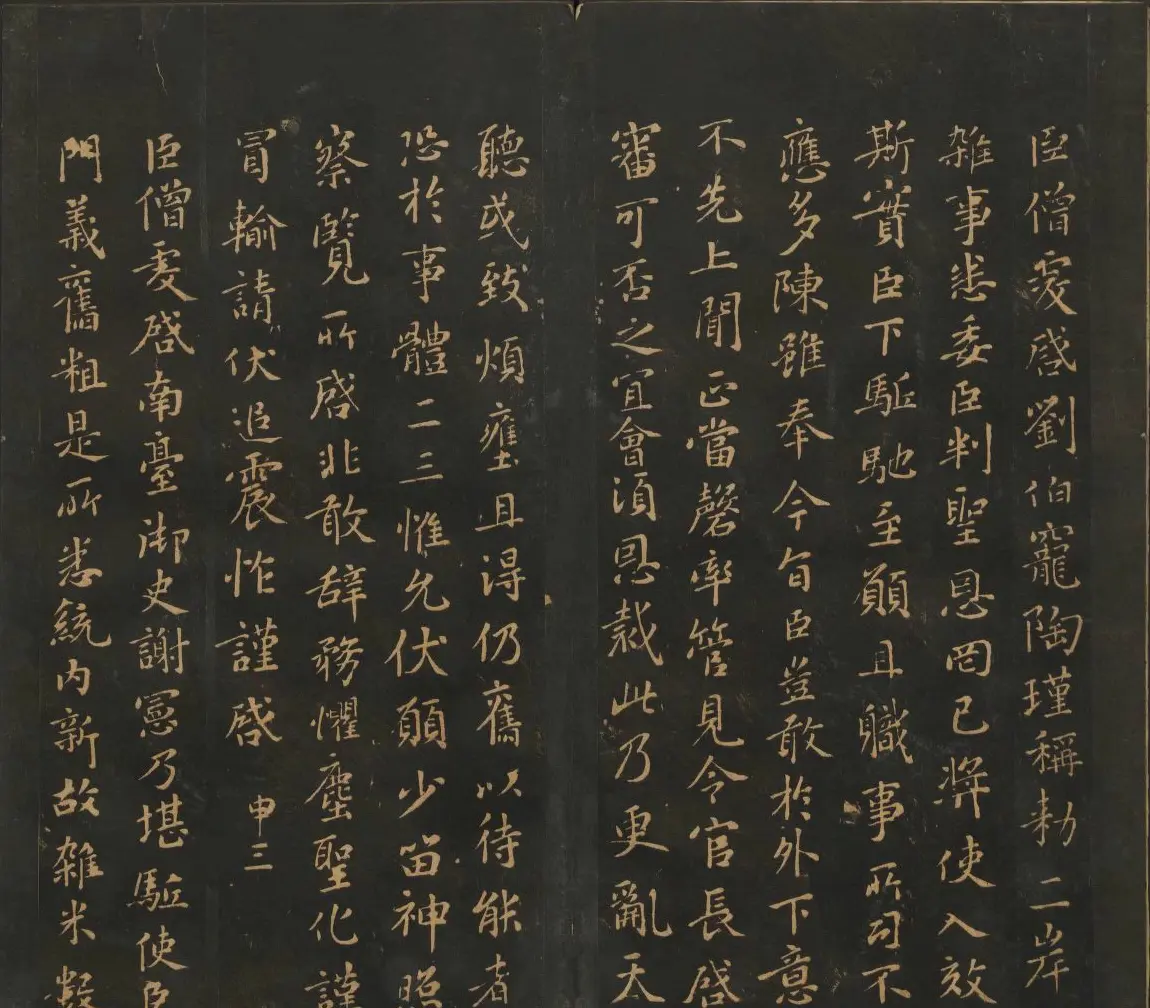 臣僧虔啓劉伯寵陶瑾稱勑二岸
雜事悉委臣判聖恩罔已將使入效
斯實臣下駈馳至願且職事所司不
應多陳雖奉今旨臣豈敢於外下意
不先上聞正當罄率管見令官長啓
審可否之宜會須恩裁此乃更亂天
聽或致煩壅且得仍舊以待能者
恐於事體二三惟允伏願少留神照
察覽所啓非敢辞務懼塵聖化謹
冒輸請伏追震怍謹啓 申三
臣僧虔啓南臺御史謝憲乃堪駈使臣
門義舊粗是所悉統內新故雜米穀